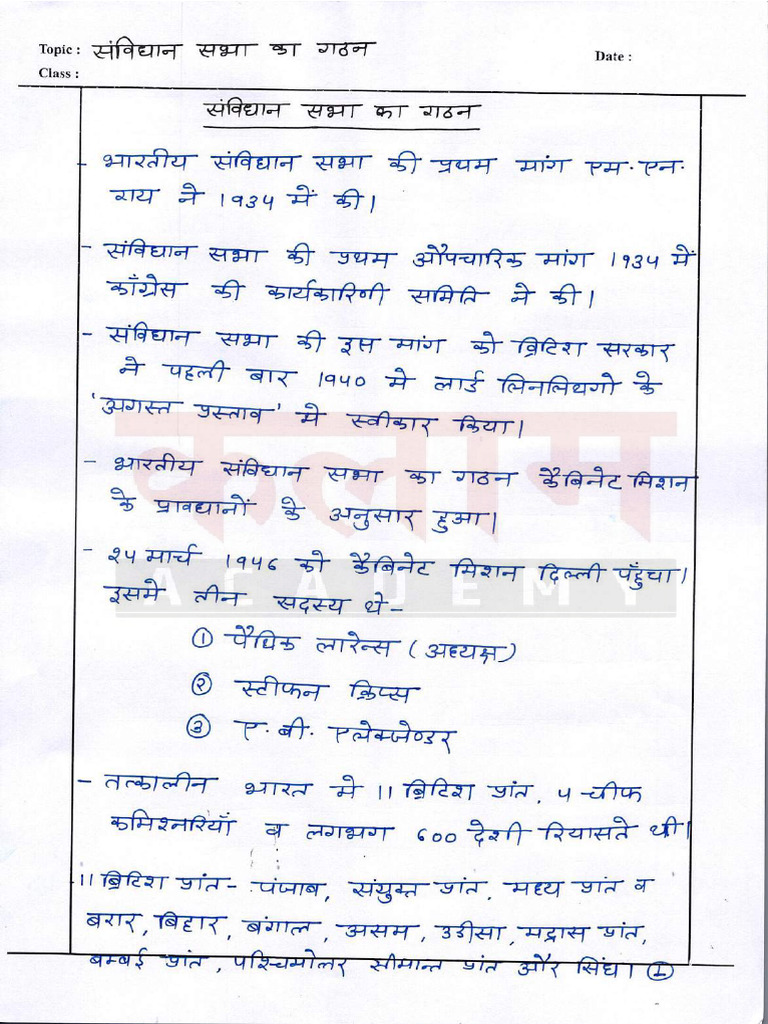 Topic : संविधान सभा का गठन
Date :
Class :
संविधान सभा का गठन
- भारतीय संविधान सभा की प्रथम मांग एम. एन.
राय ने 1934 में की।
- संविधान सभा की प्रथम औपचारिक मांग 1934 में
काँग्रेस की कार्यकारिणी समिति ने की।
- संविधान सभा की इस मांग को ब्रिटिश सरकार
ने पहली बार 1940 मे लार्ड लिनलिथगो के
'अगस्त प्रस्ताव' मे स्वीकार किया।
कलाम
ACADEMY
- भारतीय संविधान सभा का गठन कैबिनेट मिशन
के प्रावधानों के अनुसार हुआ।
- 24 मार्च 1946 को कैबिनेट मिशन दिल्ली पहुँचा।
इसमे तीन सदस्य थे-
① पैथिक लारेन्स (अध्यक्ष)
② स्टीफन क्रिप्स
③ ए. बी. एलेक्जेण्डर
- तत्कालीन भारत मे 11 ब्रिटिश प्रांत, 4 चीफ
कमिश्नरियाँ व लगभग 600 देशी रियासते थी।
11 ब्रिटिश प्रांत- पंजाब, संयुक्त प्रांत, मध्य प्रांत व
बरार, बिहार, बंगाल, असम, उडीसा, मद्रास प्रांत,
बम्बई प्रांत, पश्चिमोत्तर सीमान्त प्रांत और सिंध। ①